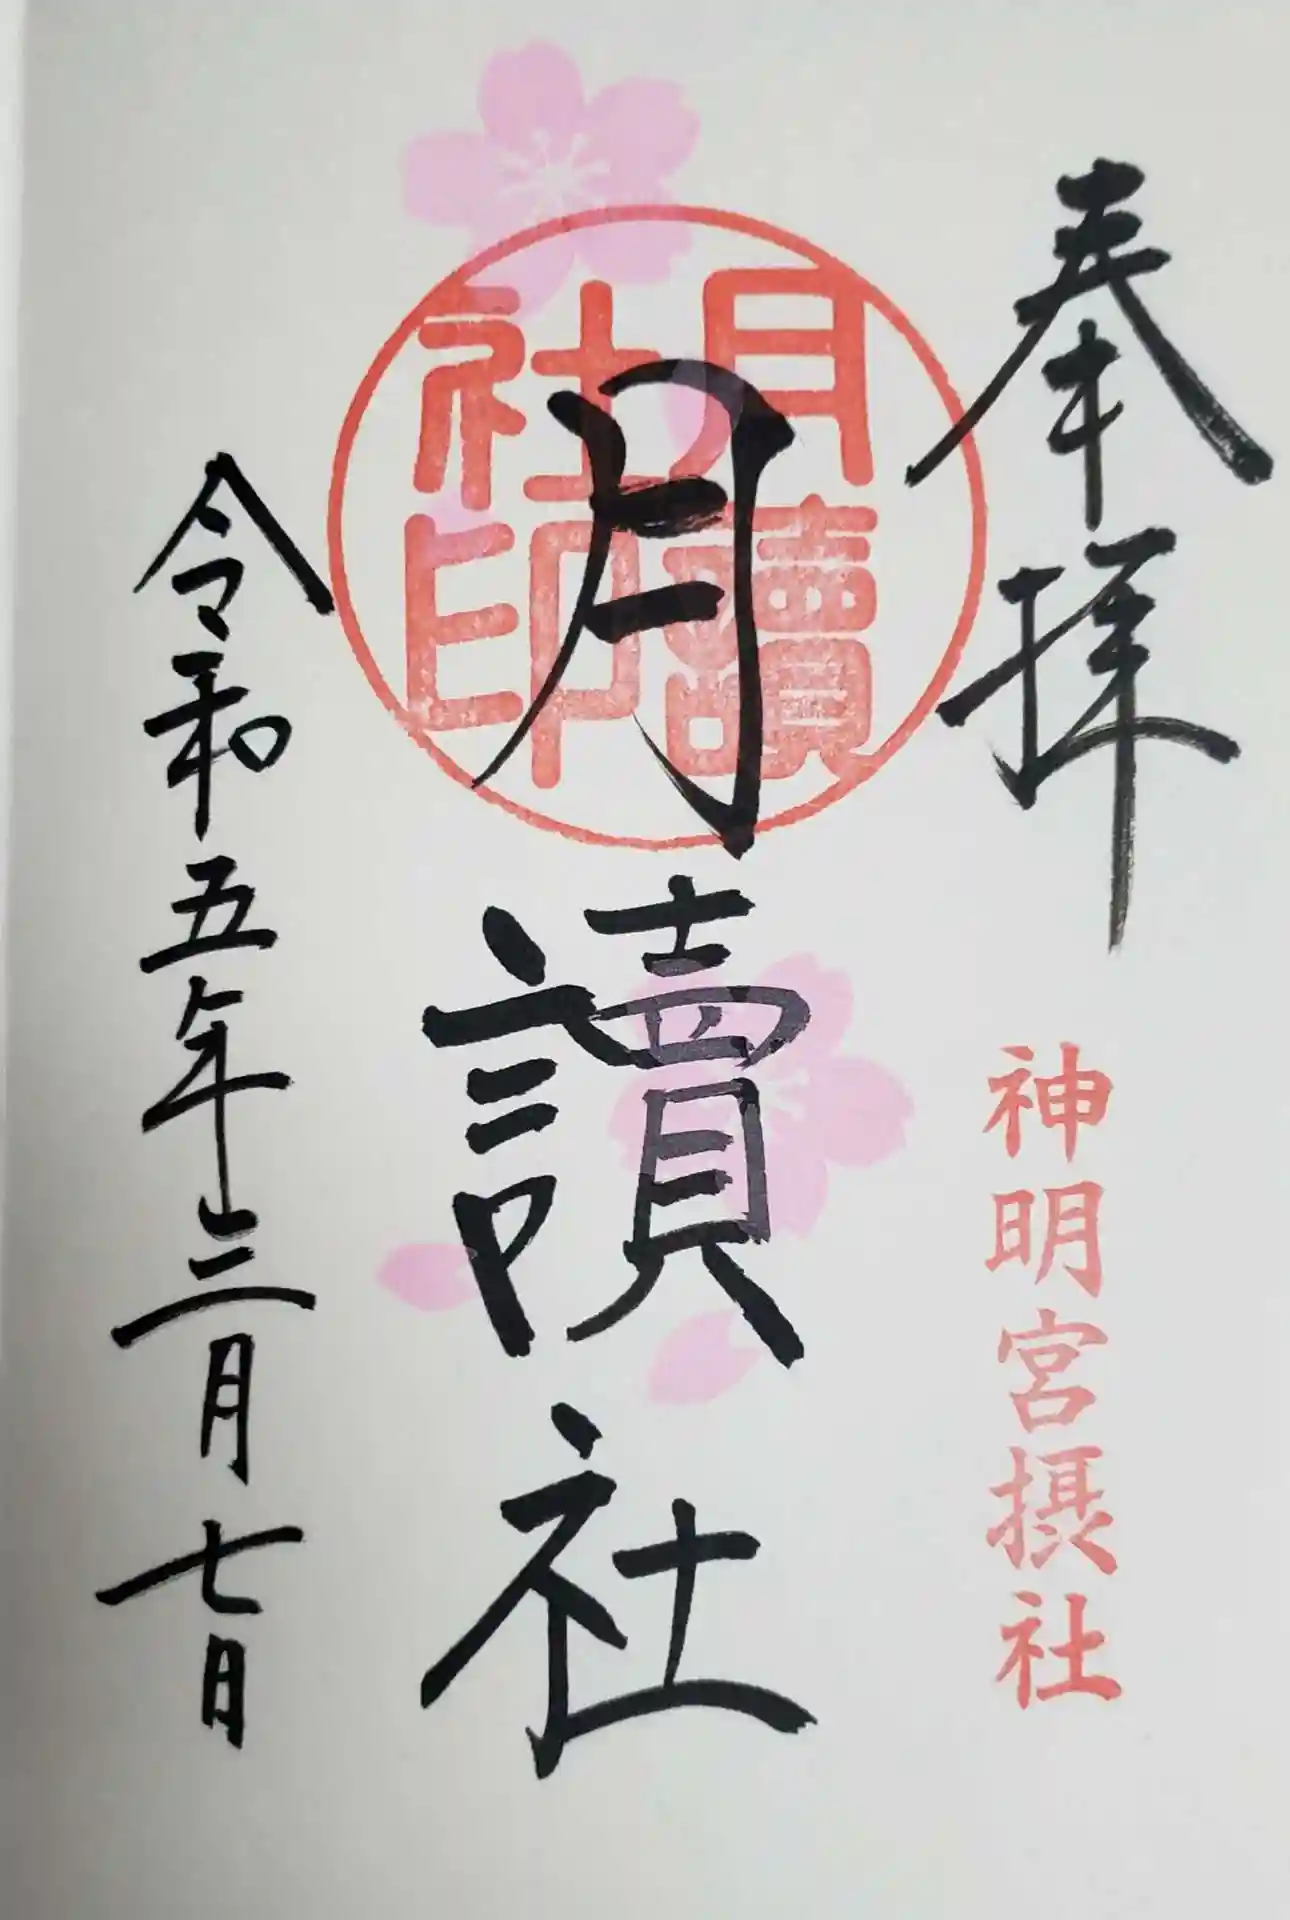 奉拝
神明宮摂社
月讀社
月讀
社印
令和五年三月七日